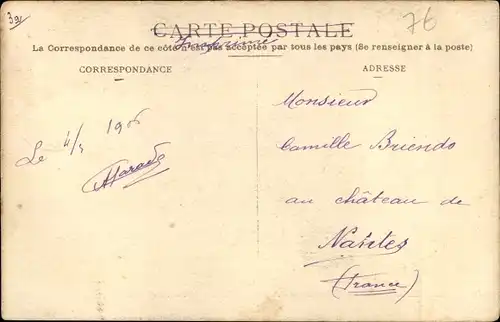 3a
76
CARTE POSTALE
Imprimé
La Correspondance de ce côté n'est pas acceptée par tous les pays (Se renseigner à la poste)
CORRESPONDANCE
ADRESSE
Le 4/5 1906
Monsieur
Camille Briendo
au château de
Nantes
(France)